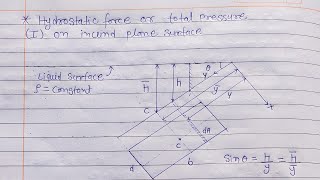 * Hydrostatic force or total pressure
(I) on inclind plane surface
Liquid surface
ρ = constant
h̄
h
θ
y
ȳ
y
x
C
dA
c
a
b
Sinθ = h/y = h̄/ȳ